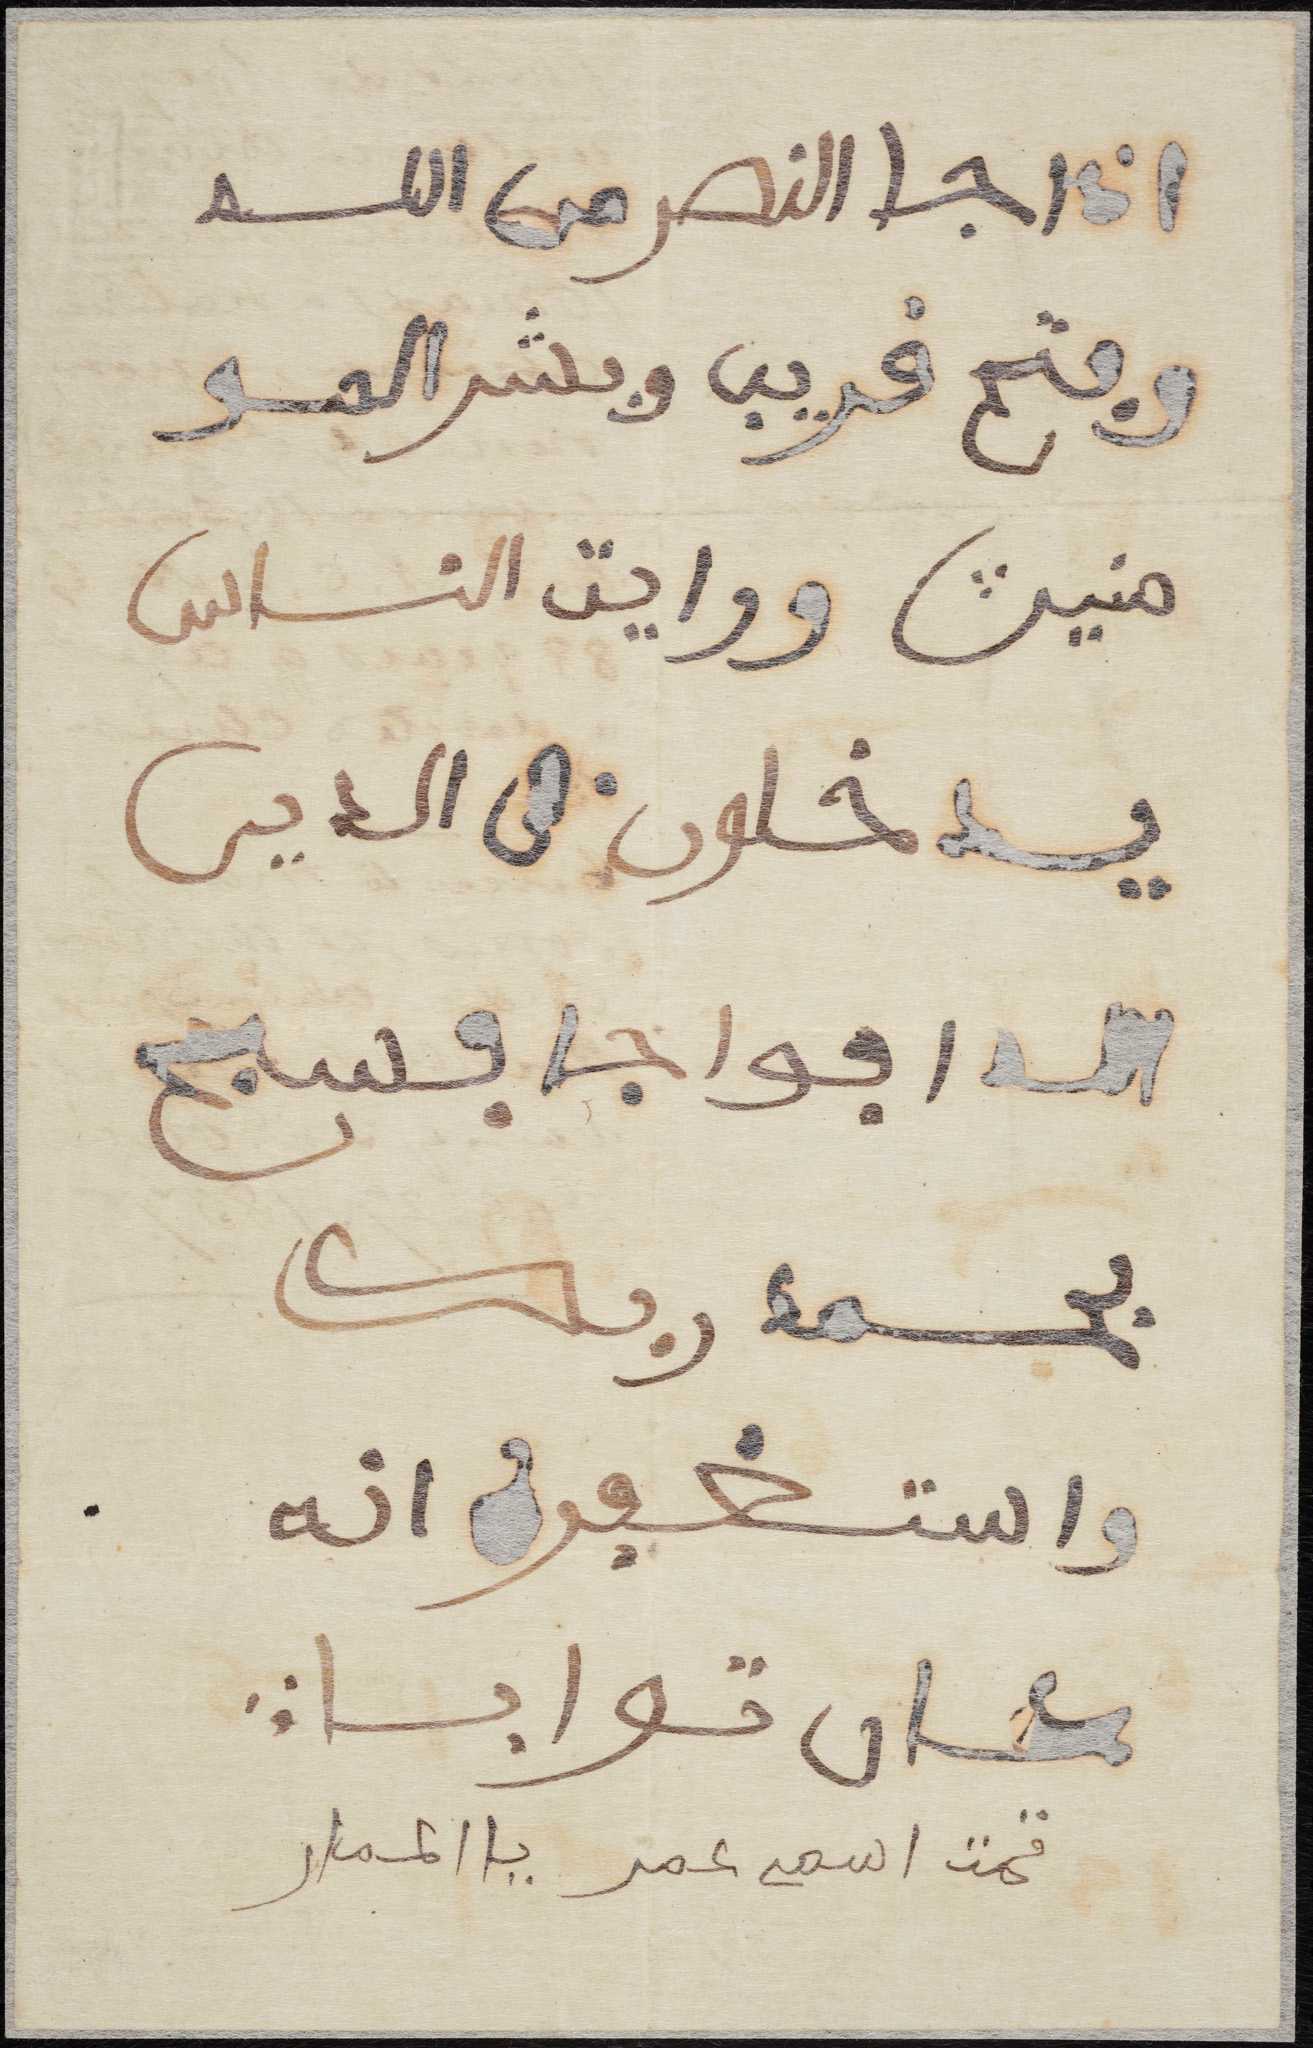 اذا جا النصر من الله
وفتح قريب وبشر المو
منين ورايت الناس
يدخلون في الدين
الله افواجا فسبح
بحمد ربك
واستغفره انه
كان توابا
تمت اسمي عمر